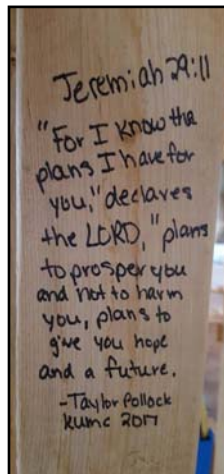 Jeremiah 29:11
"For I know the
plans I have for
you," declares
the LORD, "plans
to prosper you
and not to harm
you, plans to
give you hope
and a future.
-Taylor Pollock
KUMC 2017